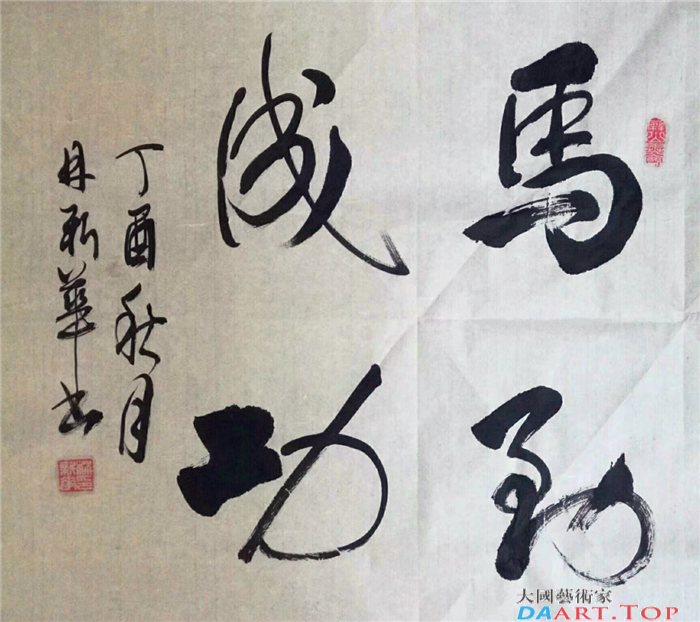 馬到
成功
丁酉秋月
新華书
大國藝術家
DAART.TOP